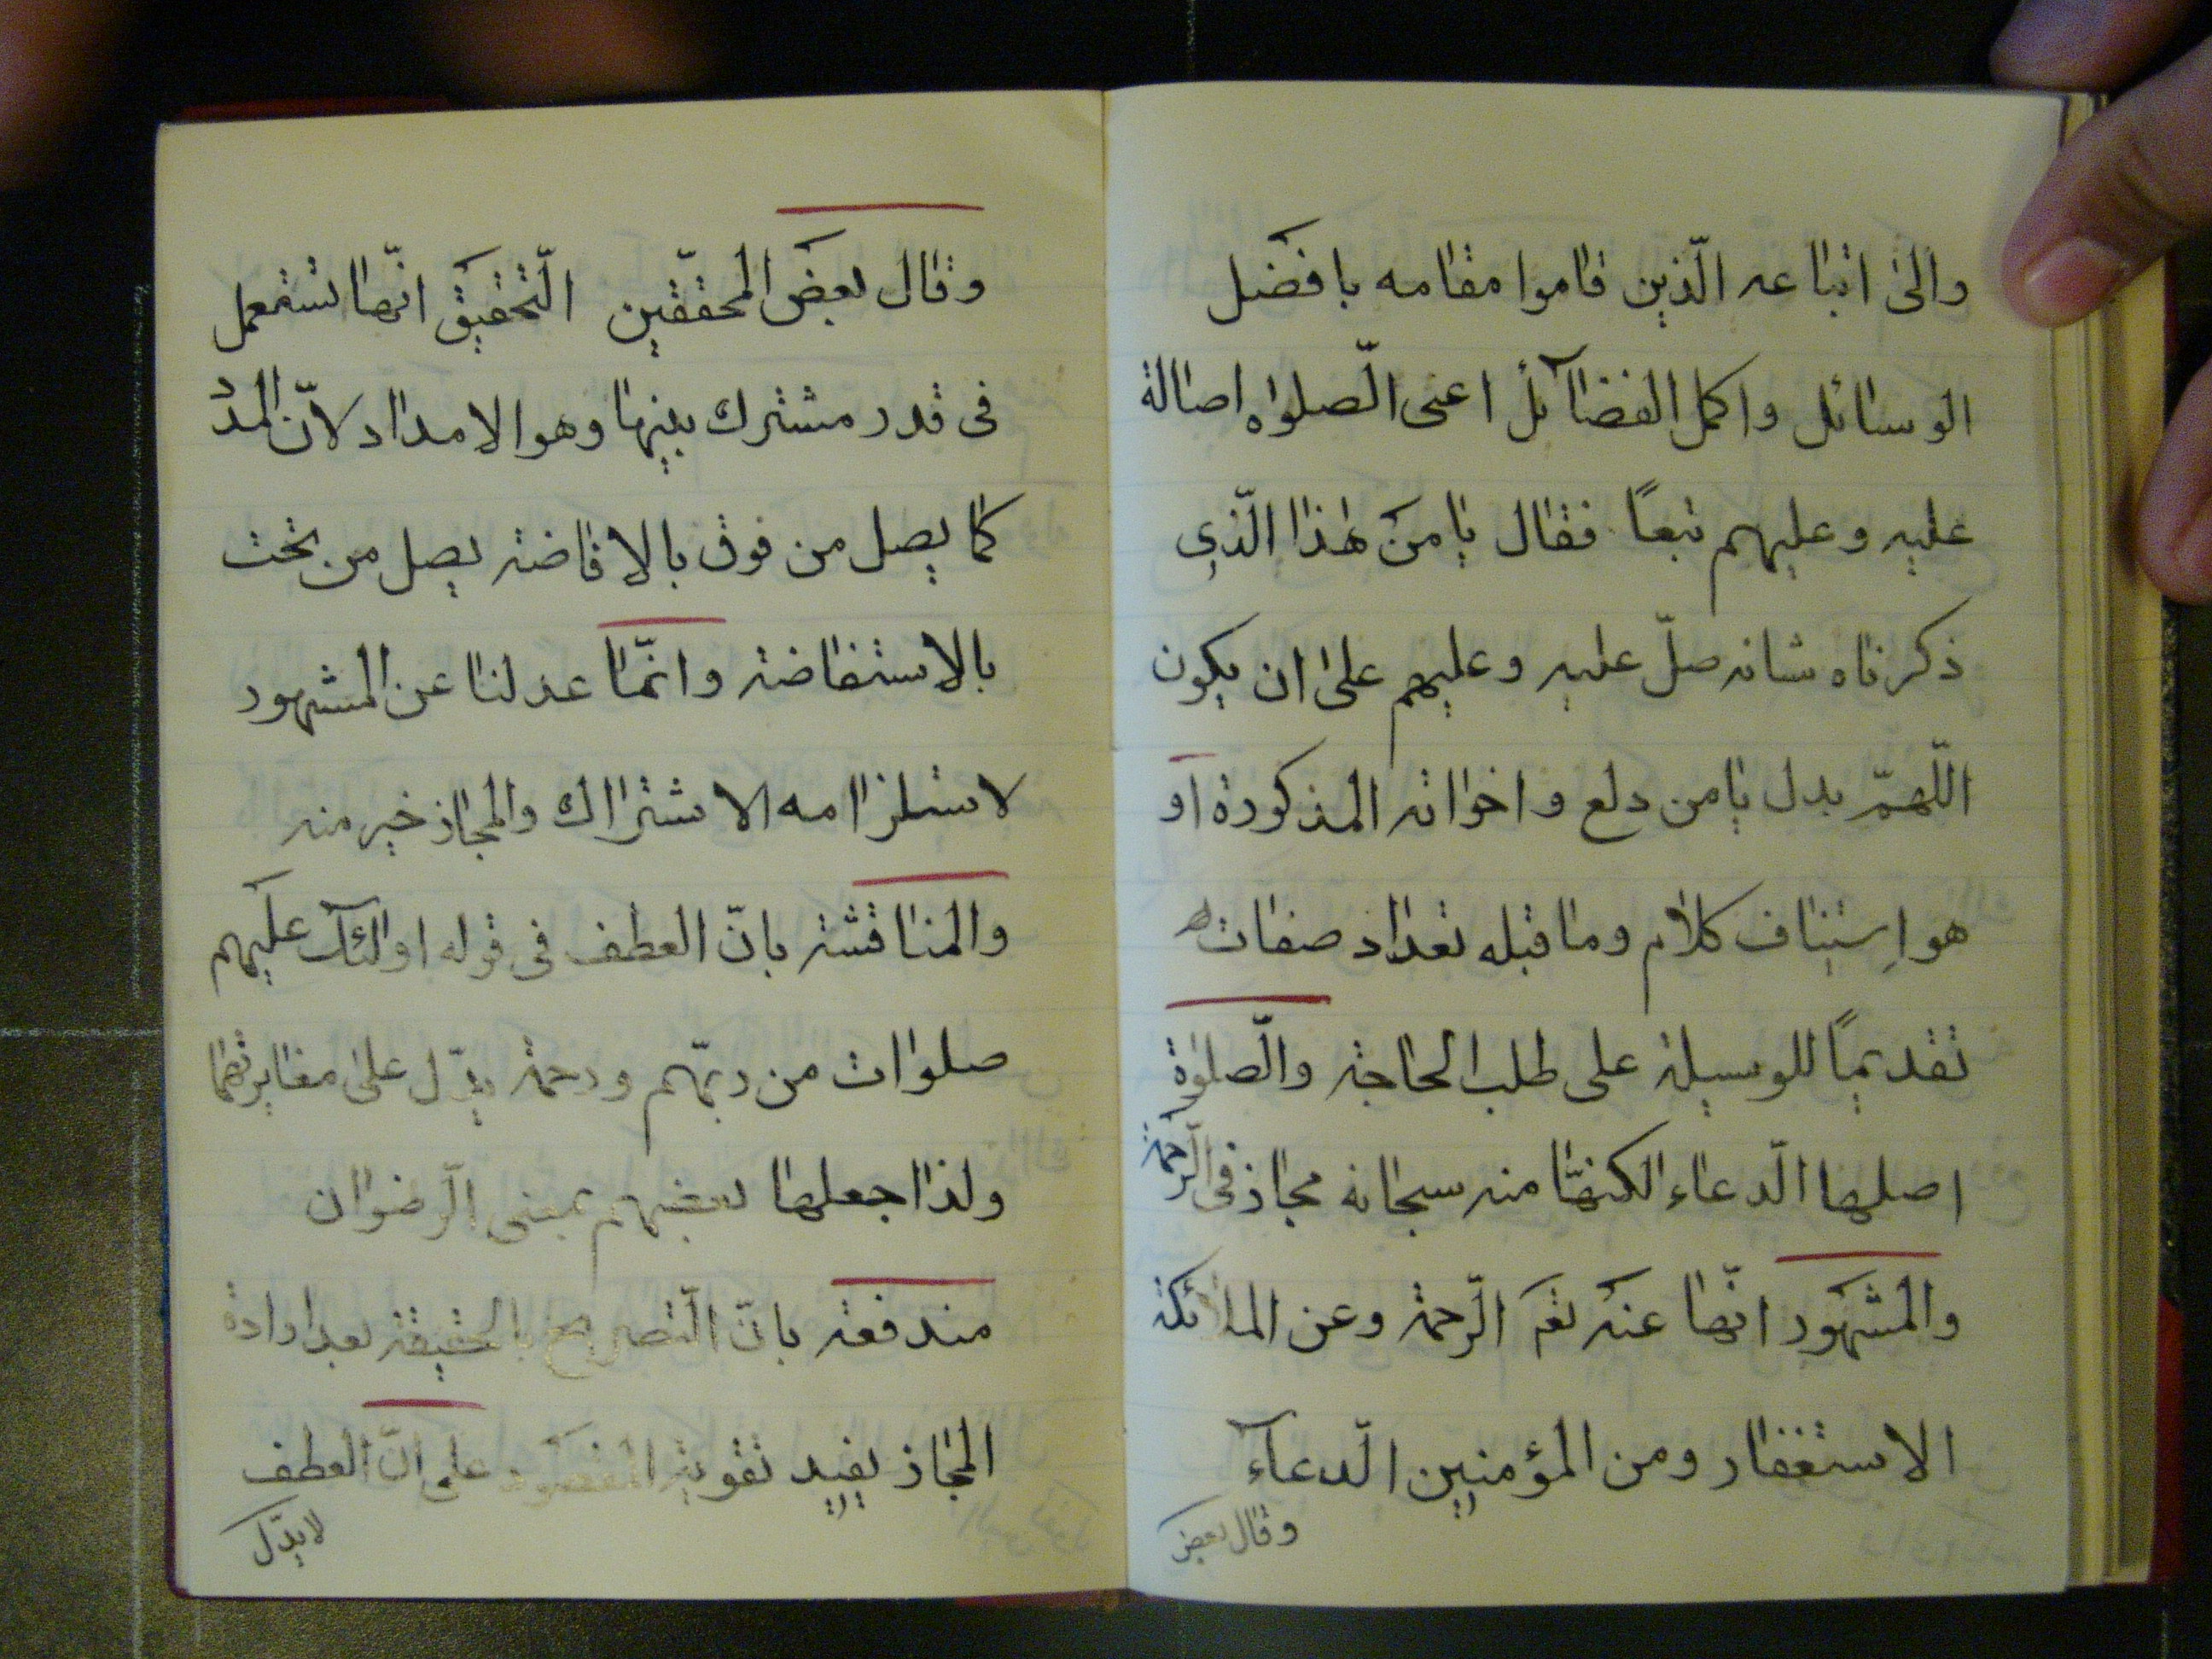 والىٰ اتباعه الّذين قاموا مقامه بافضل
الوسائل واكمل الفضآئل اعنى الصّلواه اصالة
عليه وعليهم تبعاً فقال يا من هٰذا الّذي
ذكرناه شانه صلّ عليه وعليهم علىٰ ان يكون
اللّهمّ بدل يا من دلع واخواته المذكورة او
هو اِستيناف كلام وما قبله تعداد صفات
تقديماً للوسيلة على طلب الحاجة والصّلوٰة
اصلها الدّعاء لكنهّا منه سبحانه مجاز فى الرّحمة
والمشهور انّها عنه تعٰ الرّحمة وعن الملائكة
الاستغفار ومن المؤمنين الدّعآء
وقال بعض
وقال بعض المحقّقين التّحقيق انّها تستعمل
فى قدر مشترك بينها وهو الامداد لانّ المدد
كما يصل من فوق بالافاضة يصل من تحت
بالاستفاضة وانّما عدلنا عن المشهور
لاستلزامه الاشتراك والمجاز خير منه
والمناقشة بانّ العطف فى قوله اولٰئك عليهم
صلوات من ربّهم ورحمة يدّل علىٰ مغايرتهما
ولذا جعلها بعضهم بمعنى الرّضوان
مندفعة بانّ التّصريح بالحقيقة بعد ارادة
المجاز يفيد تقوية المقصود على انّ العطف
لا يدّل